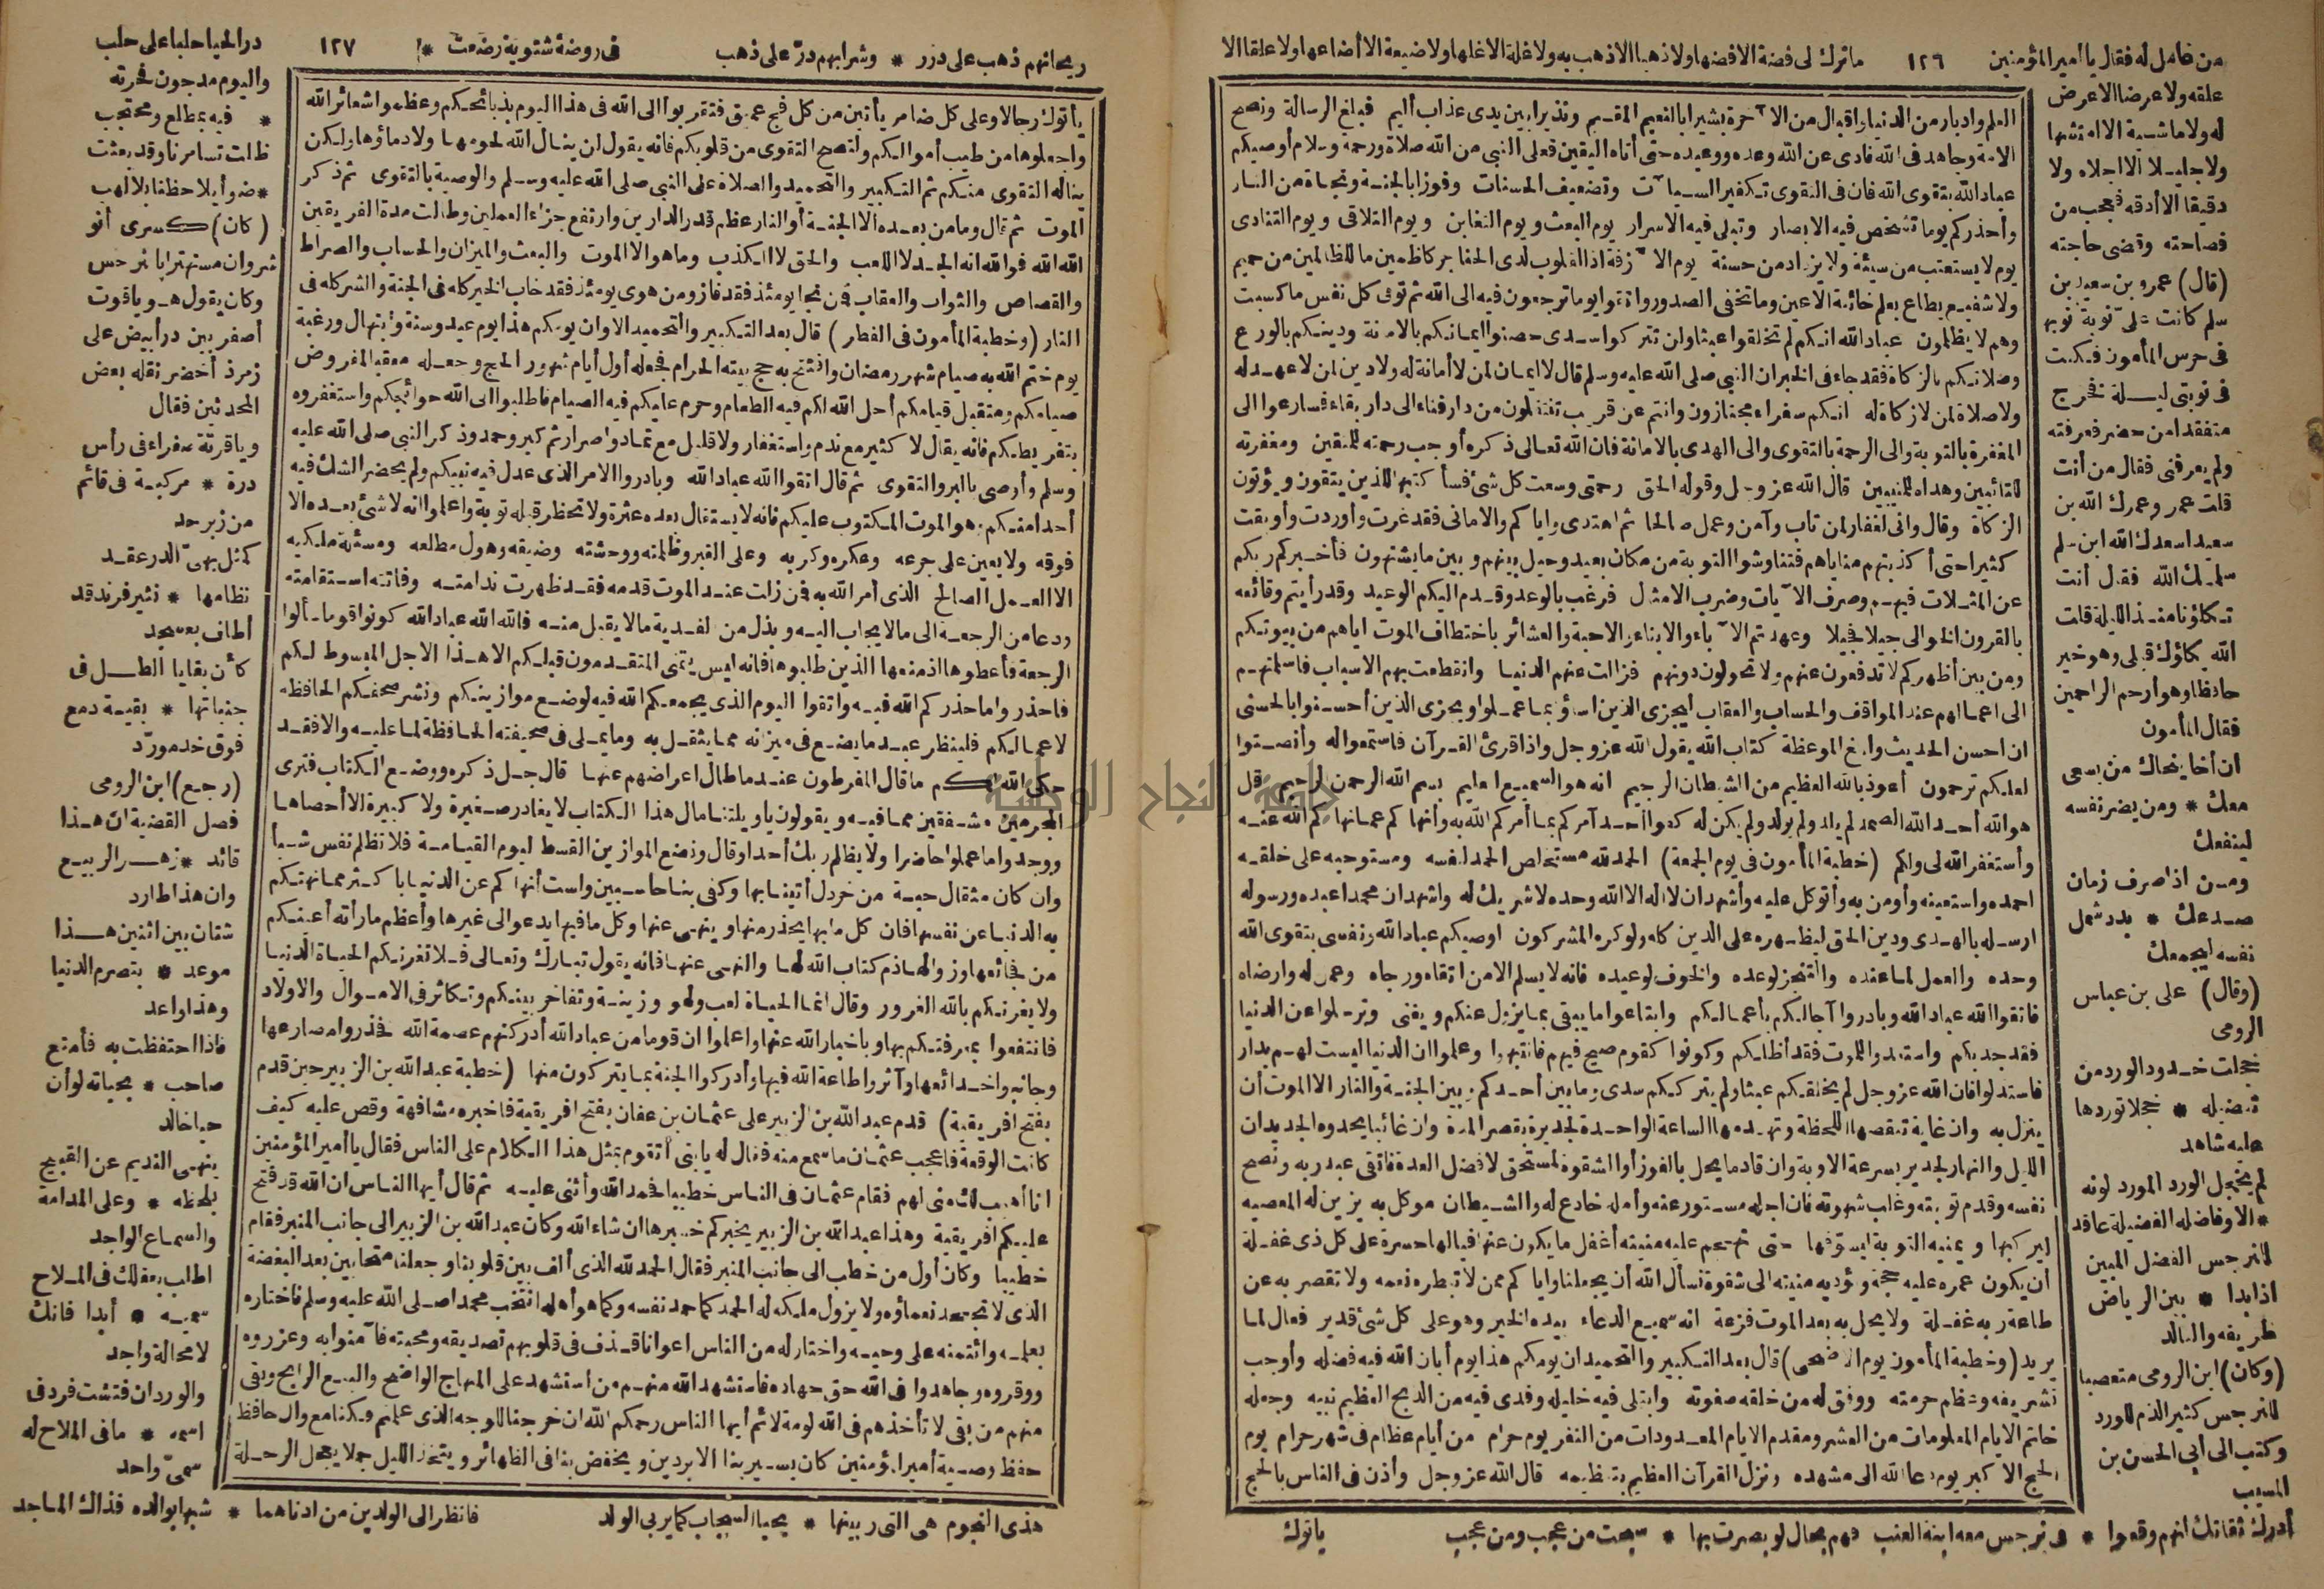 من عامل له فقال يا أمير المؤمنين ١٢٦ ما ترك لى فضة الا فضها ولا ذهبا الا ذهب به ولا غلة الا غلها ولا ضيعة الا أضاعها ولا علقا الا
علقه ولا عرضا الا عرض
له ولا ماشية الا امتشها
ولا جليلا الا اجلاه ولا
دقيقا الا أدقه فعجب من
فصاحته وقضى حاجته
(قال) عمرو بن سعيد بن
سلم كانت على نوبة نوبها
فى حرس المأمون فكنت
فى نوبتى ليلة فخرج
متفقدا من حضر فعرفته
ولم يعرفنى فقال من أنت
قلت عمر وعمرك الله بن
سعيد اسعدك الله ابن سلم
سلمك الله فقال أنت
تكلؤنا منذ الليلة قلت
الله يكلؤك قبلى وهو خير
حافظا وهو أرحم الراحمين
فقال المأمون
ان أخا هيجاك من يسعى
معك * ومن يضر نفسه
لينفعك
ومن اذا صرف زمان
صدعك * بدد شمل
نفسه ليجمعك
(وقال) على بن عباس
الرومى
خجلت خدود الورد من
تفضيله * خجلا توردها
عليه شاهد
لم يخجل الورد المورد لونه
* الا وفاضله الفضيلة عاند
للنرجس الفضل المبين
اذا بدا * بين الرياض
طريفه والتالد
(وكان) ابن الرومى متعصبا
للنرجس كثير الذم للورد
وكتب الى أبى الحسن بن
المسيب
أدرك ثقاتك انهم وقعوا * فى نرجس معه ابنة العنب فهم بحال لو بصرت بها * سبحت من عجب ومن عجب
العلم وادبار من الدنيا واقبال من الآخرة بشيرا بالنعيم المقيم ونذيرا بين يدى عذاب أليم فبلغ الرسالة ونصح
الامة وجاهد فى الله فادى عن الله وعده ووعيده حتى أتاه اليقين فعلى النبى من الله صلاة ورحمة وسلام أوصيكم
عباد الله بتقوى الله فان فى التقوى تكفير السيآت وتضعيف الحسنات وفوزا بالجنة ونجاة من النار
وأحذركم يوما تشخص فيه الابصار وتبلى فيه الاسرار يوم البعث ويوم التغابن ويوم التلاقى ويوم التنادى
يوم لا يستعتب من سيئة ولا يزاد من حسنة يوم الآزفة اذ القلوب لدى الحناجر كاظمين ما للظالمين من حميم
ولا شفيع يطاع يعلم خائنة الاعين وما تخفى الصدور واتقوا يوما ترجعون فيه الى الله ثم توفى كل نفس ما كسبت
وهم لا يظلمون عباد الله انكم لم تخلقوا عبثا ولن تتركوا سدى حصنوا ايمانكم بالامانة ودينكم بالورع
وصلاتكم بالزكاة فقد جاء فى الخبر ان النبى صلى الله عليه وسلم قال لا ايمان لمن لا أمانة له ولا دين لمن لا عهد له
ولا صلاة لمن لا زكاة له انكم سفراء مجتازون وانتم عن قريب تنتقلون من دار فناء الى دار بقاء فسارعوا الى
المغفرة بالتوبة والى الرحمة بالتقوى والى الهدى بالامانة فان الله تعالى ذكره أوجب رحمته للمتقين ومغفرته
للتائبين وهداه للمنيبين قال الله عز وجل وقوله الحق رحمتى وسعت كل شئ فسأكتبها للذين يتقون ويؤتون
الزكاة وقال وانى لغفار لمن تاب وآمن وعمل صالحا ثم اهتدى واياكم والامانى فقد غرت وأوردت وأوبقت
كثيرا حتى أكذبتهم مناياهم فتناوشوا التوبة من مكان بعيد وحيل بينهم وبين ما يشتهون فأخبركم ربكم
عن المثلات فيهم وصرف الآيات وضرب الامثال فرغب بالوعد وقدم اليكم الوعيد وقد رأيتم وقائعه
بالقرون الخوالى جيلا فجيلا وعهدتم الآباء والابناء والاحبة والعشائر باختطاف الموت اياهم من بيوتكم
ومن بين أظهركم لا تدفعون عنهم ولا تحولون دونهم فزالت عنهم الدنيا وانقطعت بهم الاسباب فاسلمتهم
الى اعمالهم عند المواقف والحساب والعقاب ليجزى الذين اساؤا بما عملوا ويجزى الذين أحسنوا بالحسنى
ان احسن الحديث وابلغ الموعظة كتاب الله يقول الله عز وجل واذا قرئ القرآن فاستمعوا له وأنصتوا
لعلكم ترحمون أعوذ بالله العظيم من الشيطان الرجيم انه هو السميع العليم بسم الله الرحمن الرحيم قل
هو الله أحد الله الصمد لم يلد ولم يولد ولم يكن له كفوا أحد آمركم بما أمركم الله به وأنهاكم عما نهاكم الله عنه
وأستغفر الله لى ولكم (خطبة المأمون فى يوم الجمعة) الحمد لله مستخلص الحمد لنفسه ومستوجبه على خلقه
احمده واستعينه وأومن به وأتوكل عليه وأشهد ان لا اله الا الله وحده لا شريك له واشهد ان محمدا عبده ورسوله
ارسله بالهدى ودين الحق ليظهره على الدين كله ولو كره المشركون اوصيكم عباد الله ونفسى بتقوى الله
وحده والعمل لما عنده والتنجز لوعده والخوف لوعيده فانه لا يسلم الا من اتقاه ورجاه وعمل له وارضاه
فاتقوا الله عباد الله وبادروا آجالكم بأعمالكم وابتاعوا ما يبقى بما يزول عنكم ويفنى وترحلوا عن الدنيا
فقد جد بكم واستعدوا للموت فقد أظلكم وكونوا كقوم صيح فيهم فانتبهوا وعلموا ان الدنيا ليست لهم بدار
فاستبدلوا فان الله عز وجل لم يخلقكم عبثا ولم يترككم سدى وما بين أحدكم وبين الجنة والنار الا الموت أن
ينزل به وان غاية تنقصها اللحظة وتهدمها الساعة الواحدة لجديرة بقصر المدة وان غائبا يحدوه الجديدان
الليل والنهار لجدير بسرعة الاوبة وان قادما يحل بالفوز أو الشقوة لمستحق لافضل العدة فاتقى عبد ربه ونصح
نفسه وقدم توبته وغلب شهوته فان اجله مستور عنه وأمله خادع له والشيطان موكل به يزين له المعصية
ليركبها ويمنيه التوبة ليسوفها حتى تهجم عليه منيته أغفل ما يكون عنها فيالها حسرة على كل ذى غفلة
أن يكون عمره عليه حجة وتؤديه منيته الى شقوة نسأل الله أن يجعلنا واياكم ممن لا تبطره نعمه ولا تقصر به عن
طاعة ربه غفلة ولا يحل به بعد الموت فزعة انه سميع الدعاء بيده الخير وهو على كل شئ قدير فعال لما
يريد (وخطبة المأمون يوم الاضحى) قال بعد التكبير والتحميد ان يومكم هذا يوم أبان الله فيه فضله وأوجب
تشريفه وعظم حرمته ووفق له من خلقه صفوته وابتلى فيه خليله وفدى فيه من الذبح العظيم نبيه وجعله
خاتم الايام المعلومات من العشر ومقدم الايام المعدودات من النفر يوم حرام من أيام عظام فى شهر حرام يوم
الحج الاكبر يوم دعا الله الى مشهده ونزل القرآن العظيم بتعظيمه قال الله عز وجل وأذن فى الناس بالحج
يأتوك
ريحانهم ذهب على درر * وشرابهم در على ذهب فى روضة شتوية رضعت * ١٢٧ در الحيا حلبا على حلب
واليوم مدجون فحرته
* فيه بمطلع ومحتجب
ظلت تسامرنا وقد بعثت
* ضوأ يلاحظنا بلا لهب
(كان) كسرى أنو
شروان مستهترا بالنرجس
وكان يقول هو ياقوت
أصفر بين در أبيض على
زمرذ أخضر نقله بعض
المحدثين فقال
وياقوتة صفراء فى رأس
درة * مركبة فى قائم
من زبرجد
كمثل بهى الدر عقد
نظامها * نثير فرند قد
أطاف بعسجد
كأن بقايا الطل فى
جنباتها * بقية دمع
فوق خد مورد
(رجع) ابن الرومى
فصل القضية ان هذا
قائد * زهر الربيع
وان هذا طارد
شتان بين اثنين هذا
موعد * بتصرم الدنيا
وهذا واعد
فاذا احتفظت به فأمتع
صاحب * بحياته لو أن
حيا خالد
ينهى النديم عن القبيح
بلحظه * وعلى المدامة
والسماع الواجد
اطلب بعقلك فى الملاح
سميه * أبدا فانك
لا محالة واجد
والورد ان فتشت فرد فى
اسمه * ما فى الملاح له
سمى واحد
هذى النجوم هى التى ربيتها * بحيا السحاب كما يربى الوالد فانظر الى الولدين من ادناهما * شبها بوالده فذاك الماجد
يأتوك رجالا وعلى كل ضامر يأتين من كل فج عميق فتقربوا الى الله فى هذا اليوم بذبائحكم وعظموا شعائر الله
واجعلوها من طيب أموالكم ولتصح التقوى من قلوبكم فانه يقول لن ينال الله لحومها ولا دماؤها ولكن
يناله التقوى منكم ثم التكبير والتحميد والصلاة على النبى صلى الله عليه وسلم والوصية بالتقوى ثم ذكر
الموت ثم قال وما من بعده الا الجنة أو النار عظم قدر الدارين وارتفع جزاء العملين وطالت مدة الفريقين
الله الله فوالله انه الجد لا اللعب والحق لا الكذب وما هو الا الموت والبعث والميزان والحساب والصراط
والقصاص والثواب والعقاب فمن نجا يومئذ فقد فاز ومن هوى يومئذ فقد خاب الخير كله فى الجنة والشر كله فى
النار (وخطبة المأمون فى الفطر) قال بعد التكبير والتحميد الا وان يومكم هذا يوم عيد وسنة وابتهال ورغبة
يوم ختم الله به صيام شهر رمضان وافتتح به حج بيته الحرام فجعله أول أيام شهور الحج وجعله معقبا لمفروض
صيامكم ومتقبل قيامكم أحل الله لكم فيه الطعام وحرم عليكم فيه الصيام فاطلبوا الى الله حوائجكم واستغفروه
بتفريطكم فانه يقال لا كثير مع ندم واستغفار ولا قليل مع تماد واصرار ثم كبر وحمد وذكر النبى صلى الله عليه
وسلم وأوصى بالبر والتقوى ثم قال اتقوا الله عباد الله وبادروا الامر الذى عدل فيه نبيكم ولم يحضر الشك فيه
أحدا منكم وهو الموت المكتوب عليكم فانه لا يستقال بعده عثرة ولا تحظر قبله توبة واعلموا انه لا شئ بعده الا
فوقه ولا يعين على جزعه وعكره وكربه وعلى القبر وظلمته ووحشته وضيقه وهول مطلعه ومسئلة ملكيه
الا العمل الصالح الذى أمر الله به فمن زلت عند الموت قدمه فقد ظهرت ندامته وفاتته استقامته
ودعا من الرجعة الى ما لا يجاب اليه وبذل من الفدية ما لا يقبل منه فالله الله عباد الله كونوا قوما سألوا
الرجعة فأعطوها اذ منعها الذين طلبوها فانه ليس يتمنى المتقدمون قبلكم الا هذا الاجل المبسوط لكم
فاحذروا ما حذركم الله فيه واتقوا اليوم الذى يجمعكم الله فيه لوضع موازينكم ونشر صحفكم الحافظة
لاعمالكم فلينظر عبد ما يضع فى ميزانه مما يثقل به وما يملى فى صحيفته الحافظة لما عليه والا فقد
حكى الله لكم ما قال المفرطون عندما طال اعراضهم عنها قال جل ذكره ووضع الكتاب فترى
المجرمين مشفقين مما فيه ويقولون يا ويلتنا مال هذا الكتاب لا يغادر صغيرة ولا كبيرة الا أحصاها
ووجدوا ما عملوا حاضرا ولا يظلم ربك أحدا وقال ونضع الموازين القسط ليوم القيامة فلا تظلم نفس شيأ
وان كان مثقال حبة من خردل أتينا بها وكفى بنا حاسبين ولست أنهاكم عن الدنيا باكثر مما نهتكم
به الدنيا عن نفسها فان كل ما بها يحذر منها وينهى عنها وكل ما فيها يدعو الى غيرها وأعظم ما رأته أعينكم
من فجائعها وزوالها ذم كتاب الله لها والنهى عنها فانه يقول تبارك وتعالى فلا تغرنكم الحياة الدنيا
ولا يغرنكم بالله الغرور وقال انما الحياة لعب ولهو وزينة وتفاخر بينكم وتكاثر فى الاموال والاولاد
فانتفعوا بمعرفتكم بها وباخبار الله عنها واعلموا ان قوما من عباد الله أدركتهم عصمة الله فحذروا مصارعها
وجانبوا خدائعها وآثروا طاعة الله فيها وأدركوا الجنة بما يتركون منها (خطبة عبد الله بن الزبير حين قدم
بفتح افريقية) قدم عبد الله بن الزبير على عثمان بن عفان بفتح افريقية فاخبره مشافهة وقص عليه كيف
كانت الوقعة فاعجب عثمان ما سمع منه فقال له يا بنى أتقوم بمثل هذا الكلام على الناس فقال يا أمير المؤمنين
انا أهيب لك منى لهم فقام عثمان فى الناس خطيبا فحمد الله وأثنى عليه ثم قال أيها الناس ان الله قد فتح
عليكم افريقية وهذا عبد الله بن الزبير يخبركم خبرها ان شاء الله وكان عبد الله بن الزبير الى جانب المنبر فقام
خطيبا وكان أول من خطب الى جانب المنبر فقال الحمد لله الذى ألف بين قلوبنا وجعلنا متحابين بعد البغضة
الذى لا تجحد نعماؤه ولا يزول ملكه له الحمد كما حمد نفسه وكما هو أهله انتخب محمدا صلى الله عليه وسلم فاختاره
بعلمه وائتمنه على وحيه واختار له من الناس اعوانا قذف فى قلوبهم تصديقه ومحبته فآمنوا به وعزروه
ووقروه وجاهدوا فى الله حق جهاده فاستشهد الله منهم من استشهد على المنهاج الواضح والبيع الرابح وبقى
منهم من بقى لا تأخذهم فى الله لومة لائم أيها الناس رحمكم الله ان خرجنا للوجه الذى علمتم وكنا مع وال حافظ
حفظ وصية أمير المؤمنين كان يسير بنا الابردين ويخفض بنا فى الظهائر ويتخذ الليل جملا يعجل الرحلة
جامعة النجاح الوطنية